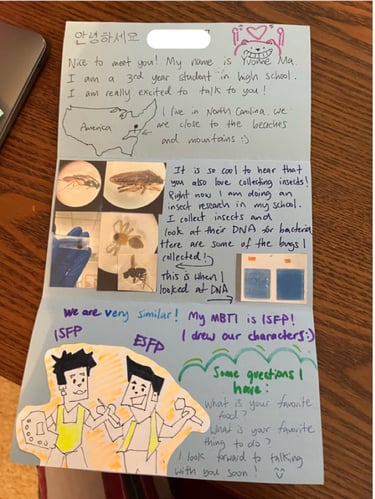 안녕하세요
Nice to meet you! My name is Yvonne Ma.
I am a 3rd year student in high school.
I am really excited to talk to you!
America
I live in North Carolina. We
are close to the beaches
and mountains :)
It is so cool to hear that
you also love collecting insects!
Right now I am doing an
insect research in my school.
I collect insects and
look at their DNA for bacteria
Here are some of the bugs I
collected!
This is when I
looked at DNA
We are very similar! My MBTI is ISFP!
I drew our characters :)
ISFP
ESFP
Some questions I
have:
What is your favorite
food?
What is your favorite
thing to do?
I look forward to talking
with you soon!